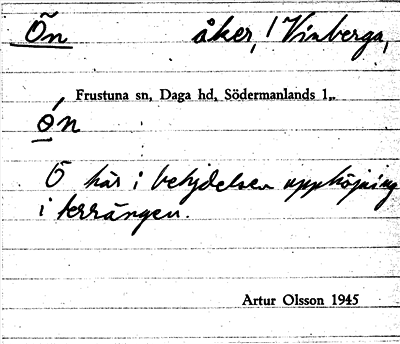 Ön åker, Vinberga,
Frustuna sn, Daga hd, Södermanlands l.,
ǿn
Ö här i betydelsen upphöjning
i terrängen.
Artur Olsson 1945